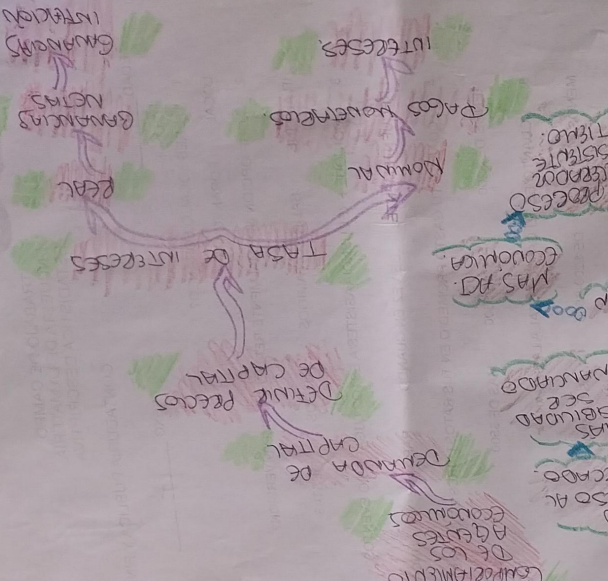 COMPORTAMIENTO
DE LOS
AGENTES
ECONOMICOS
DEMANDA DE
CAPITAL
DEFINIR PRECIOS
DE CAPITAL
TASA DE INTERESES
NOMINAL
PAGOS MONETARIOS.
INTERESES.
REAL
GANANCIAS
NETAS
GANANCIAS
INFACIÓN
SO AL
CADO
MAS
ABILIDAD
SER
NANCIADO
MAS AC.
ECONOMICA.
PROCESO
SISTENTE
TIEMO.